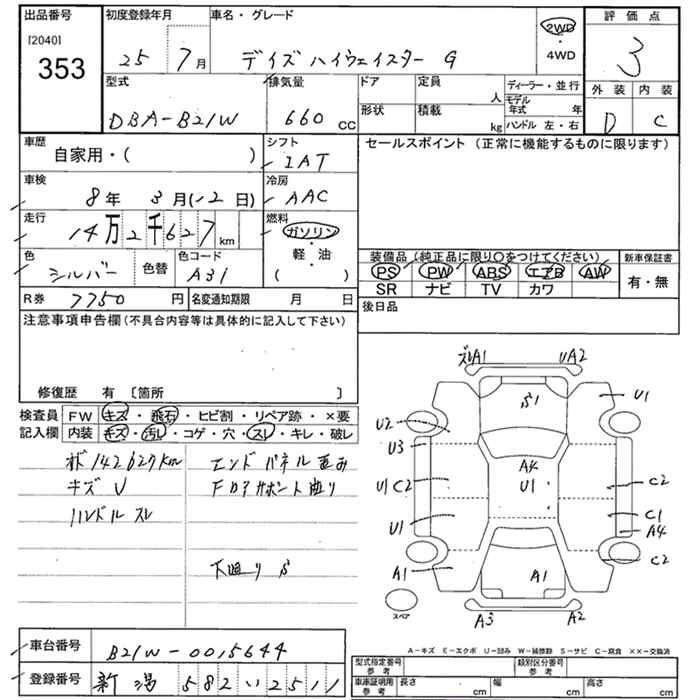 出品番号 初度登録年月 車名・グレード 2WD ・ 4WD 評価点
[2040]
353 25年 7月 デイズ ハイウェイスター G 3
型式 排気量 ドア 定員 人 ディーラー・並行 外装 内装
DBA-B21W 660 CC 形状 積載 kg モデル年式 年 ハンドル 左・右 D C
車歴 自家用・( ) シフト IAT セールスポイント (正常に機能するものに限ります)
車検 8年 3月(-2日) 冷房 AAC
走行 14万2千627km 燃料 ガソリン ・ 軽油 ( )
色 シルバー 色替 色コード A31 装備品(純正品に限り○をつけてください) 新車保証書
PS PW ABS エアB AW 有・無
SR ナビ TV カワ
R券 7750円 名変通知期限 月 日 後日品
注意事項申告欄(不具合内容等は具体的に記入して下さい)
修復歴 有 〔箇所 〕
検査員 FW キズ・飛石・ヒビ割・リペア跡・×要
記入欄 内装 キズ・汚レ・コゲ・穴・スレ・キレ・破レ
142627km エンドパネル歪み
キズ U
ハンドル スレ
下廻り S
ズレA1 UA2
S1 U1
U2
U3
A4
U1 C2 U1 C2
U1 C1
A4
C2
A1 A1
A3 A2
スペア
A-キズ E-エクボ U-凹み W-補修跡 S-サビ C-腐食 ××-交換済
車台番号 B21W-0015644
登録番号 新潟 582 い 2511
型式指定番号 参考 類別区分番号 参考
車庫証明用 参考 長さ cm 幅 cm 高さ cm